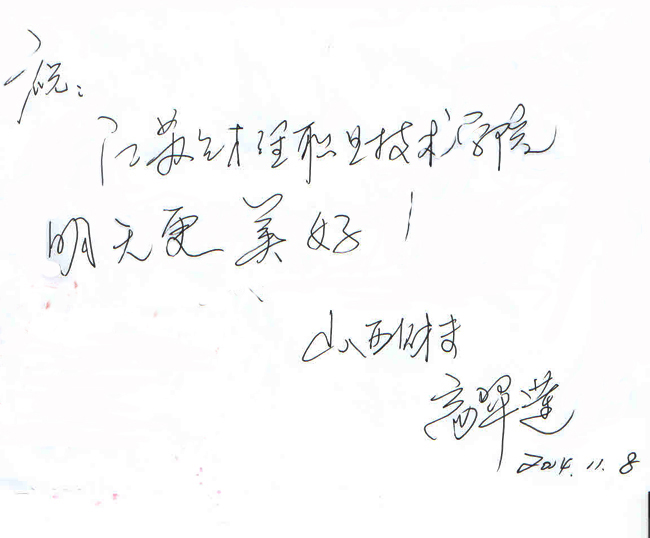 祝：
江苏财经职业技术学院
明天更美好！
山西财专
高翠莲
2004.11.8